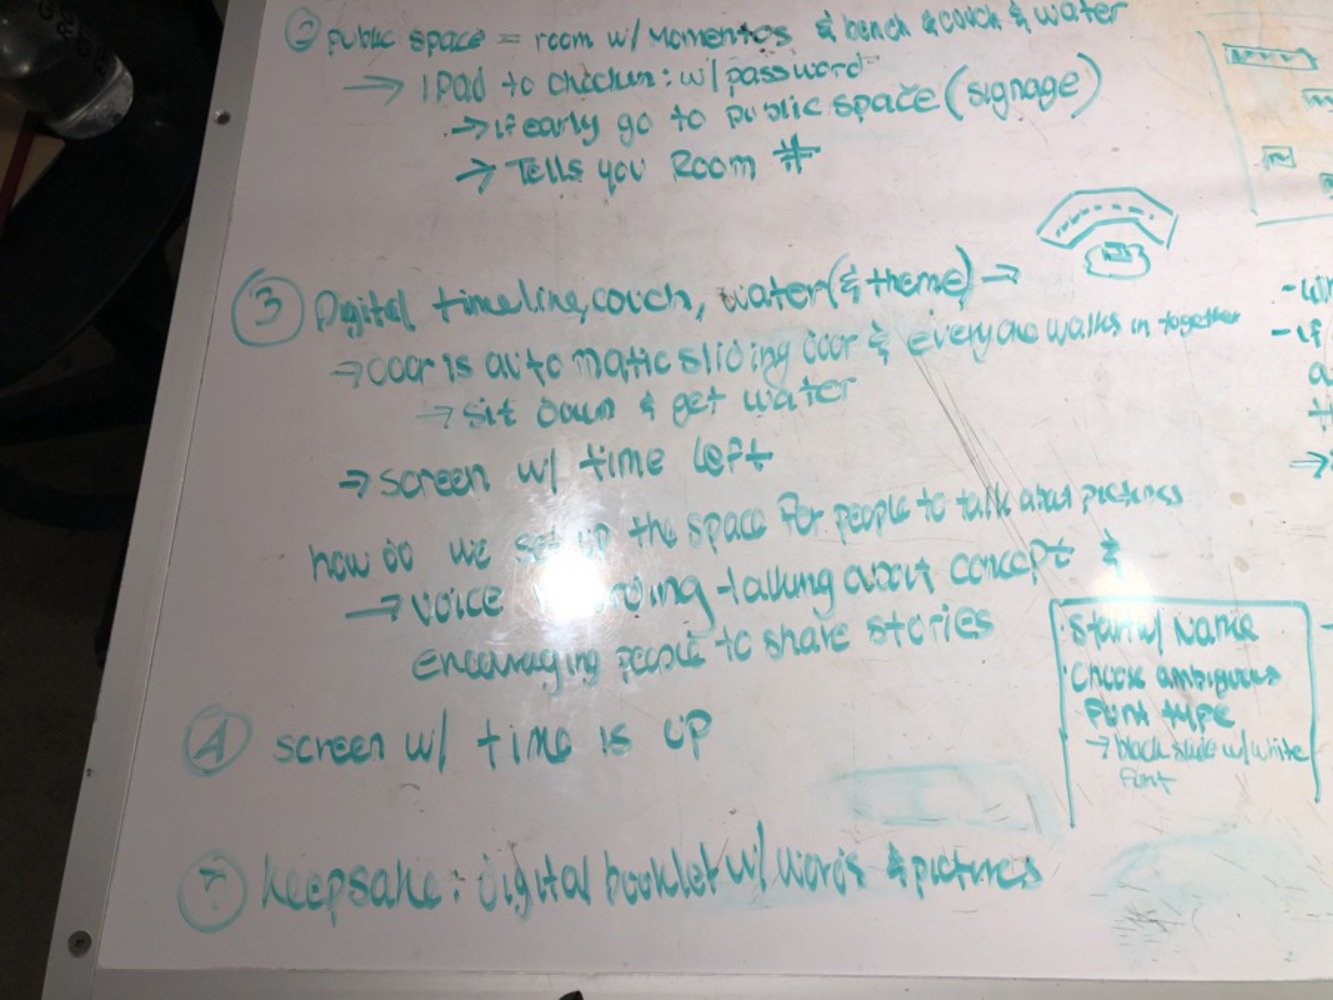 ② public space = room w/ Momentos & bench & couch & water
→ IPad to checkin: w/ password
→ if early go to public space (signage)
→ Tells you Room #
③ Digital timeline, couch, water (& theme) →
→ Door is automatic sliding door & everyone walks in together
→ sit down & get water
→ screen w/ time left
how do we set up the space for people to talk about pictures
→ voice talking about concept &
encouraging people to share stories
④ screen w/ time is up
keepsake: digital booklet w/ words & pictures
· start w/ Name
· choose ambiguous
font type
→ black slide w/ white
font
- if